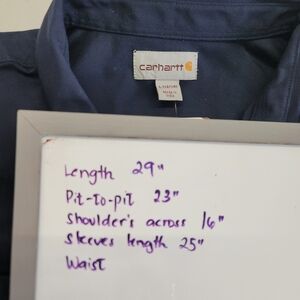 carhartt
Length 29"
Pit-to-pit 23"
Shoulder's across 16"
Sleeves length 25"
Waist